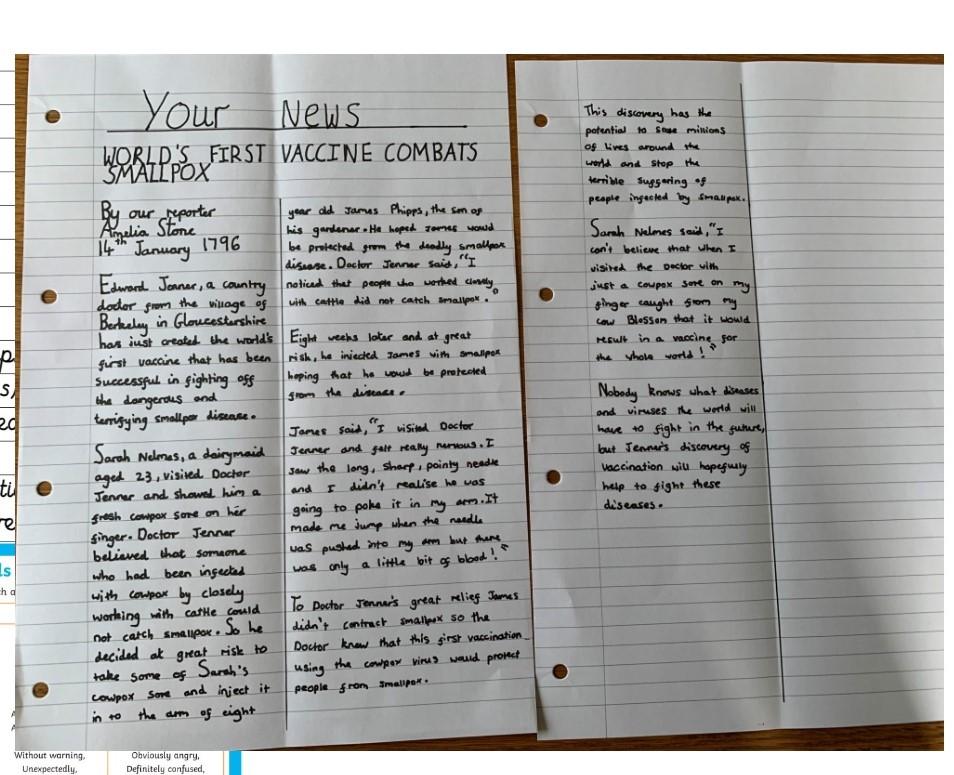 Your News
WORLD'S FIRST VACCINE COMBATS
SMALLPOX
By our reporter
Amelia Stone
14th January 1796
Edward Jenner, a country
doctor from the village of
Berkeley in Gloucestershire
has just created the world's
first vaccine that has been
successful in fighting off
the dangerous and
terrifying smallpox disease.
Sarah Nelmes, a dairymaid
aged 23, visited Doctor
Jenner and showed him a
fresh cowpox sore on her
finger. Doctor Jenner
believed that someone
who had been infected
with cowpox by closely
working with cattle could
not catch smallpox. So he
decided at great risk to
take some of Sarah's
cowpox sore and inject it
in to the arm of eight
year old James Phipps, the son of
his gardener. He hoped James would
be protected from the deadly smallpox
disease. Doctor Jenner said, "I
noticed that people who worked closely
with cattle did not catch smallpox."
Eight weeks later and at great
risk, he injected James with smallpox
hoping that he would be protected
from the disease.
James said, "I visited Doctor
Jenner and felt really nervous. I
saw the long, sharp, pointy needle
and I didn't realise he was
going to poke it in my arm. It
made me jump when the needle
was pushed into my arm but there
was only a little bit of blood!"
To Doctor Jenner's great relief James
didn't contract smallpox so the
Doctor knew that this first vaccination
using the cowpox virus would protect
people from smallpox.
This discovery has the
potential to save millions
of lives around the
world and stop the
terrible suffering of
people infected by smallpox.
Sarah Nelmes said, "I
can't believe that when I
visited the Doctor with
just a cowpox sore on my
finger caught from my
cow Blossom that it would
result in a vaccine for
the whole world!"
Nobody knows what diseases
and viruses the world will
have to fight in the future,
but Jenner's discovery of
vaccination will hopefully
help to fight these
diseases.
Without warning,
Unexpectedly,
Obviously angry,
Definitely confused,